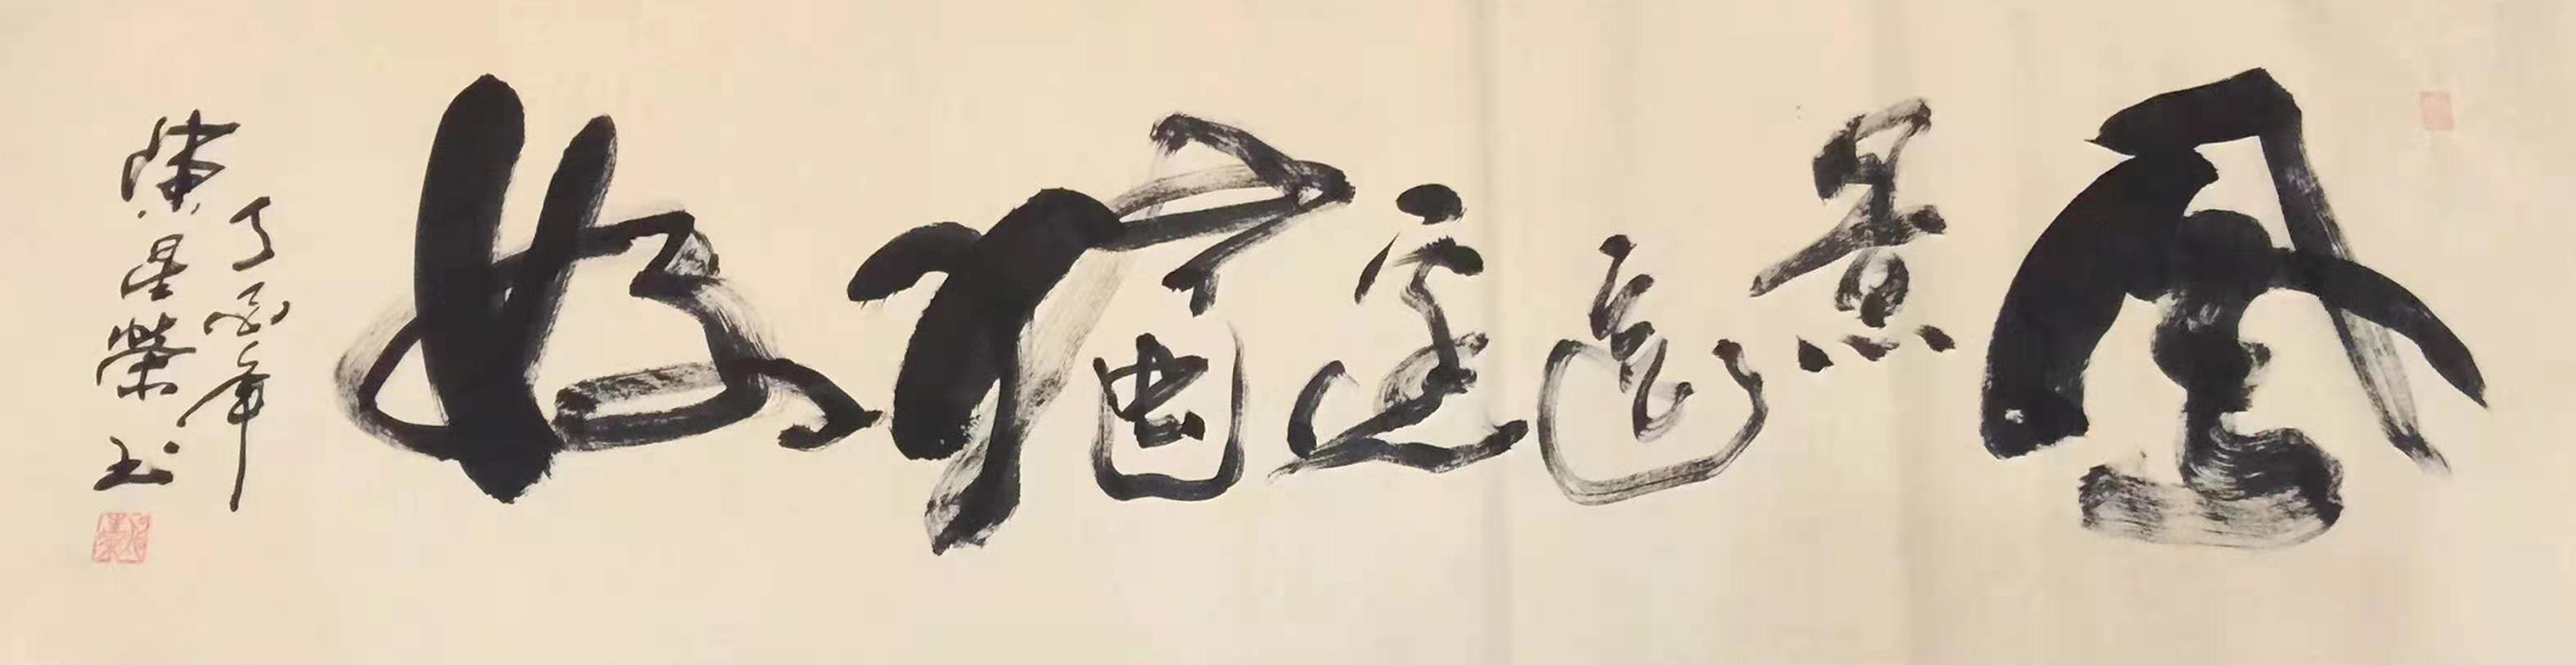 風景這邊獨好
丁酉年
陳星榮书